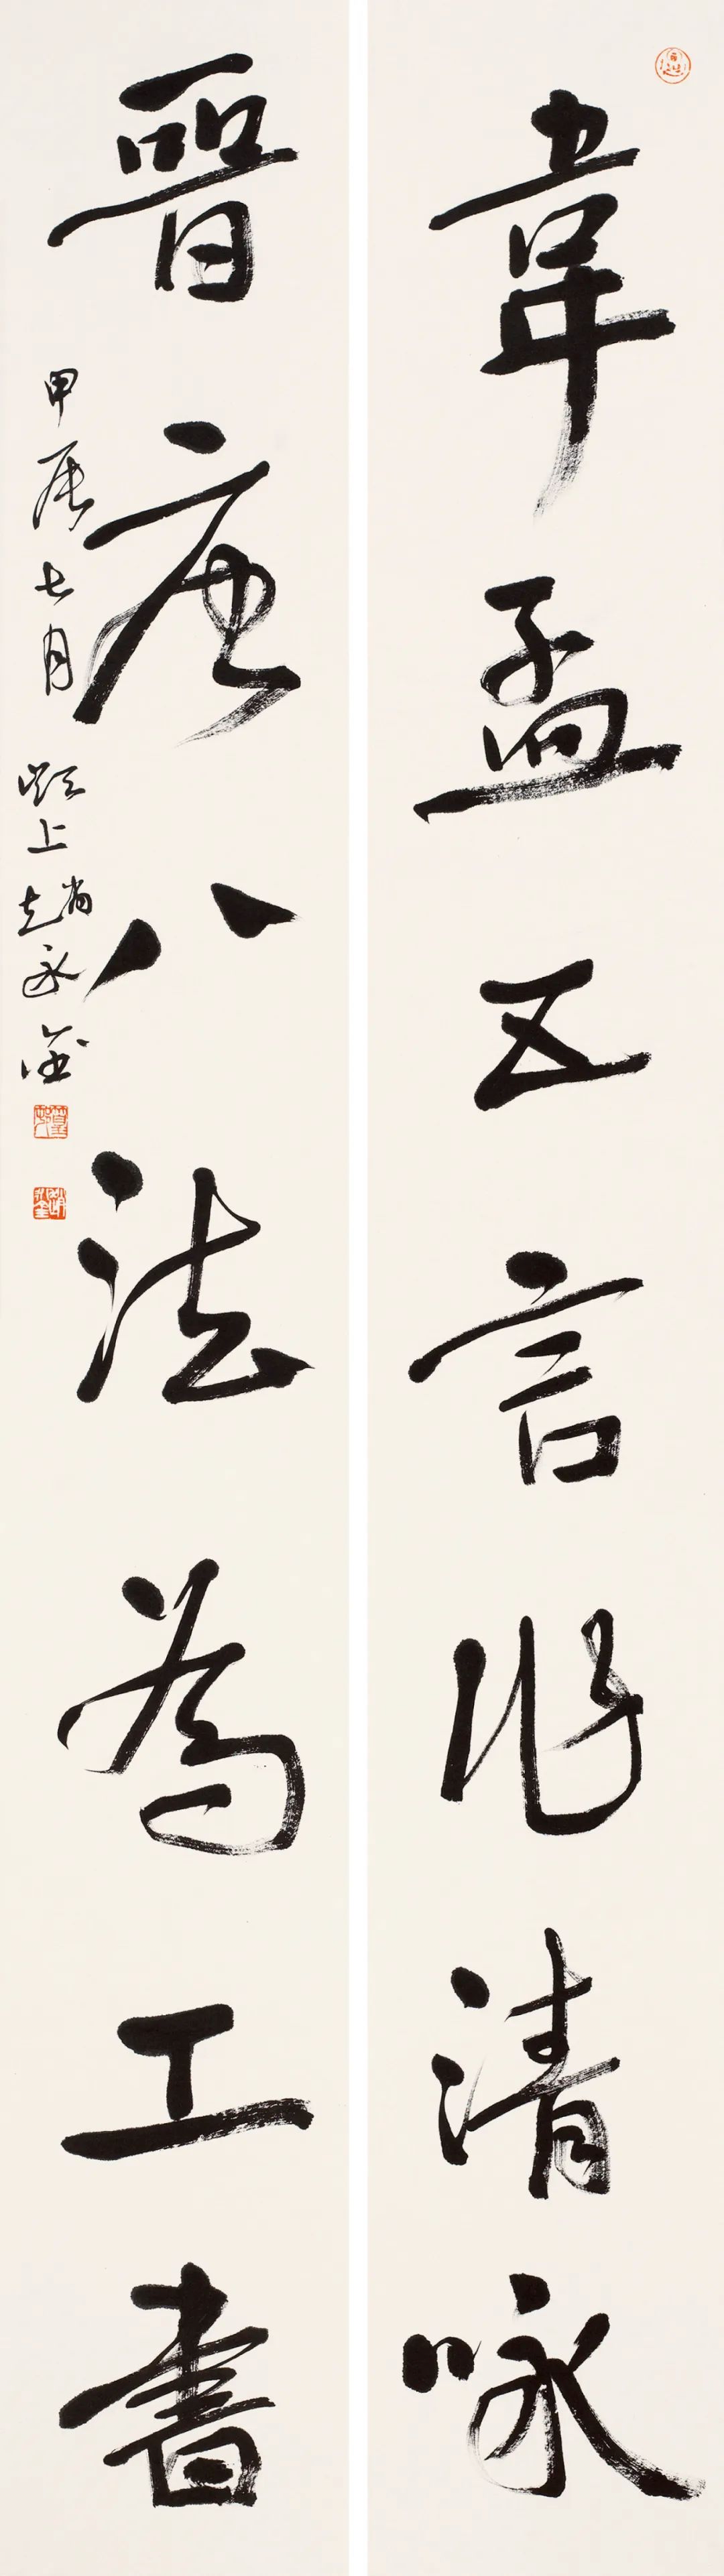 韋孟五言作清咏
晉唐八法為工書
甲辰七月
潁上趙永金